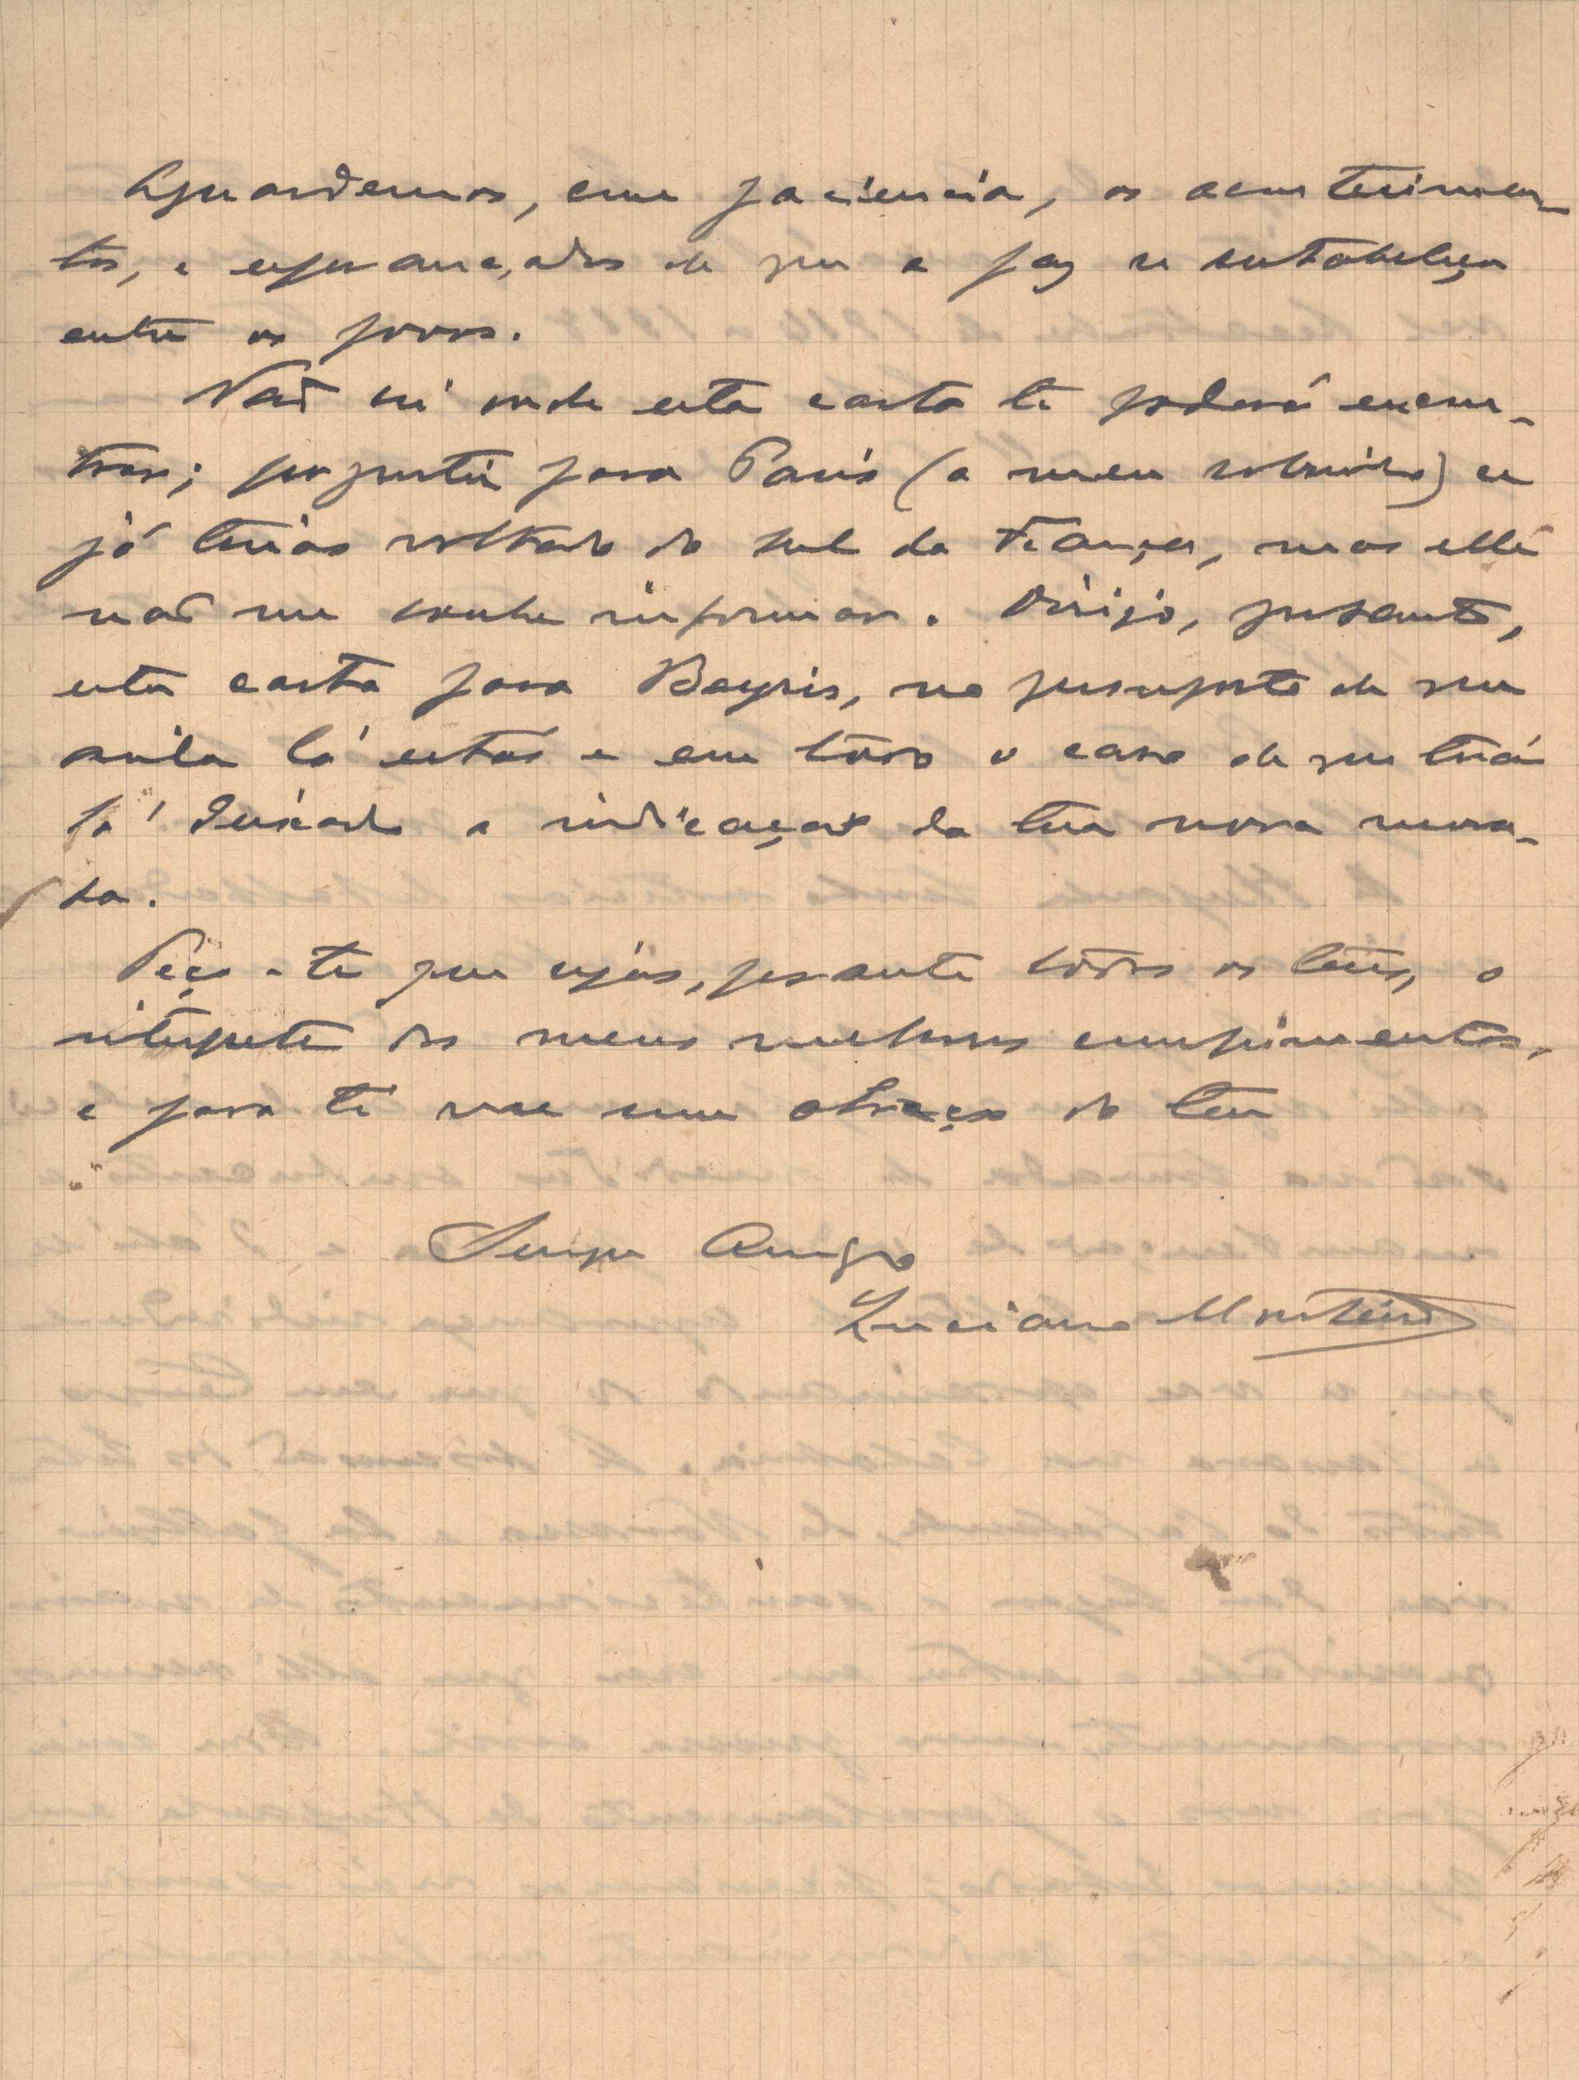 Aguardemos, com paciencia, os acontecimen-
tos, e esperançados de que a paz se restabeleça
entre os povos.
Não sei onde esta carta te poderá encon-
trar; perguntei para Paris (a meu sobrinho) se
já terias voltado do sul da França, mas elle
não me soube informar. Dirijo, portanto,
esta carta para Beyris, no presuposto de que
ainda lá estás e em todo o caso de que terás
lá deixado a indicação da tua nova mora-
da.
Peço-te que sejas, perante todos os teus, o
intérprete dos meus melhores cumprimentos,
e para ti vae um abraço do teu
Sempre Amigo
Luciano Monteiro